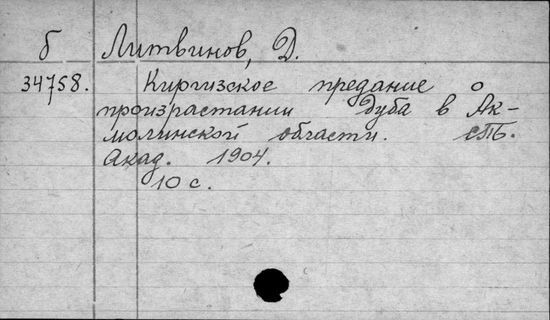 б Литвинов, Д.
34758. Киргизское предание о
произрастании дуба в Ак-
молинской области. СПб.
Акад. 1904.
10 с.